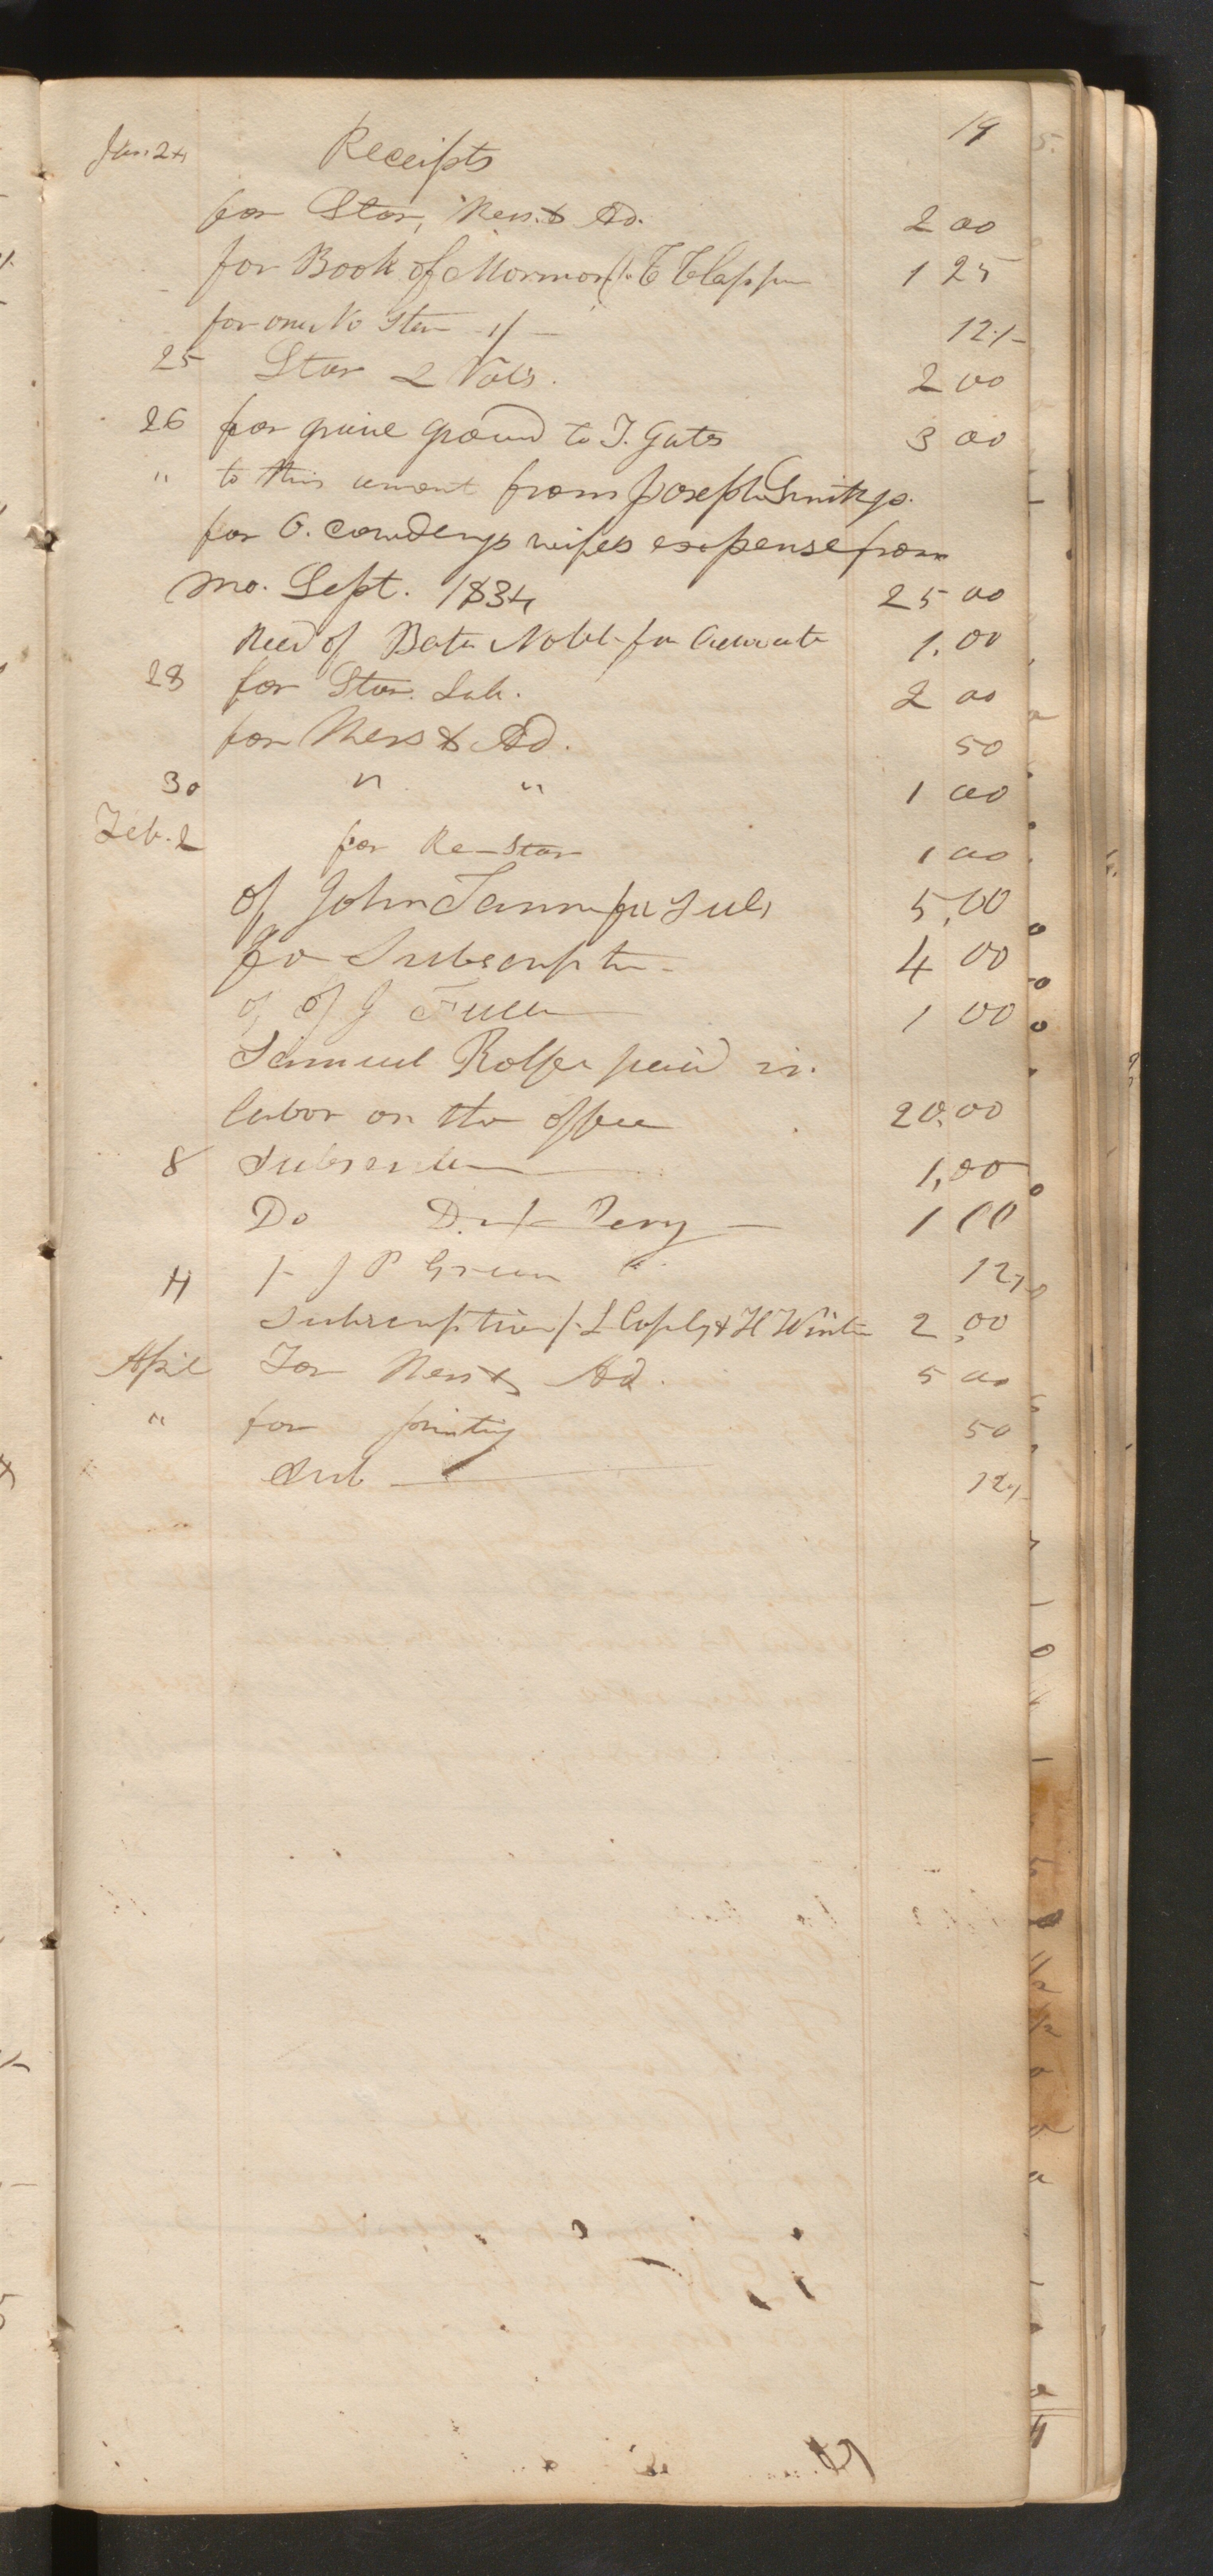 19
Jan. 24 Receipts
for Star, Mess. & Ad. 2 00
for Book of Mormon T Clapper 1 25
for one No Star 1/ 12 1/-
25 Star 2 Vols. 2 00
26 for ground to T. Gates 3 00
" to this from Joseph Smith jr.
for O. Cowderys wifes expense from
Mo. Sept. 1834 25 00
Recd of Bates Noble for 1.00
28 for Star. Sub. 2 00
for Mess & Ad. 50
30 " " 1 00
Feb. 2 for Re-Star 1 00
of John Tanner for Sub, 5,00
for Subscription 4 00
of J Fuller 1 00
Samuel Rolfe paid in
labor on the office 20,00
8 Subscription 1,00
Do Perry 1 00
J P Green 12 1/
Subscription L Copley & H Winter 2,00
April For Mess & Ad. 5 00
" for printing 50
Sub 12 1/